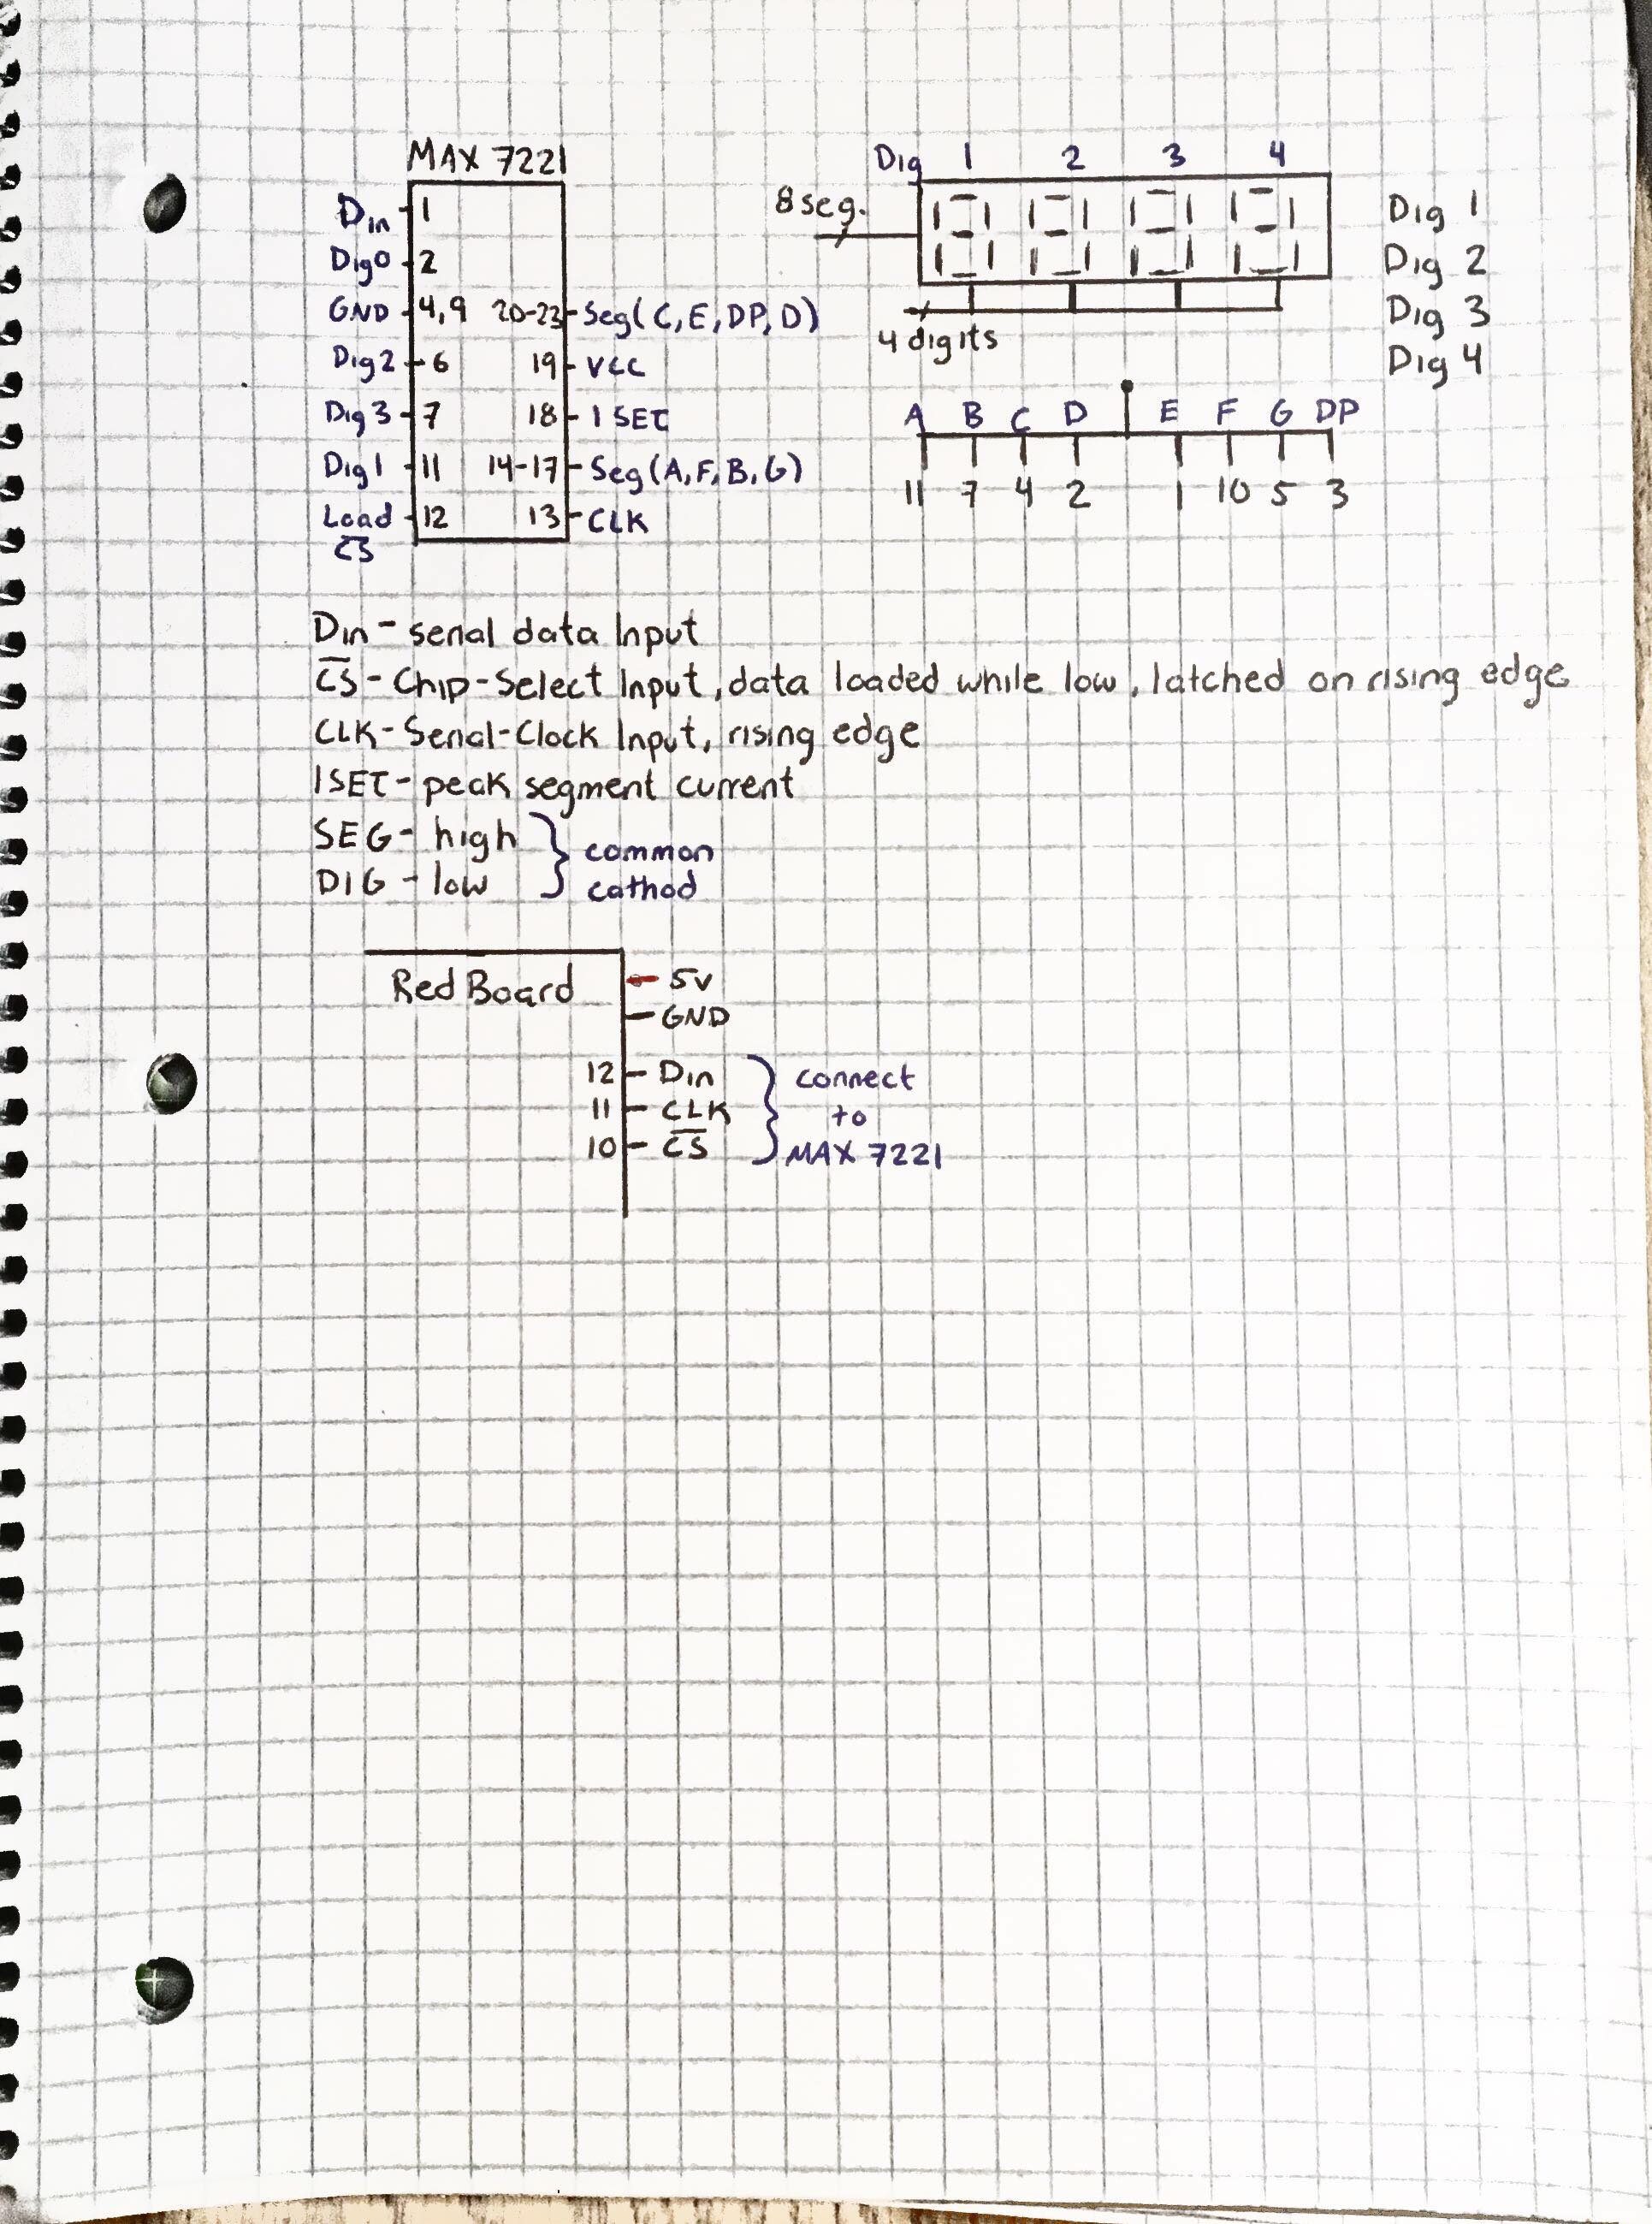 MAX 7221
Din 1
Dig0 2
GND 4,9 20-23 Seg(C,E,DP,D)
Dig2 6 19 VCC
Dig3 7 18 ISET
Dig1 11 14-17 Seg(A,F,B,G)
Load 12 13 CLK
C̅S̅
Dig 1 2 3 4
8 seg.
4 digits
Dig 1
Dig 2
Dig 3
Dig 4
A B C D E F G DP
11 7 4 2 1 10 5 3
Din - serial data Input
C̅S̅ - Chip-Select Input, data loaded while low, latched on rising edge
CLK - Serial-Clock Input, rising edge
ISET - peak segment current
SEG - high
DIG - low
common
cathod
Red Board
5v
GND
12 Din
11 CLK
10 C̅S̅
connect
to
MAX 7221